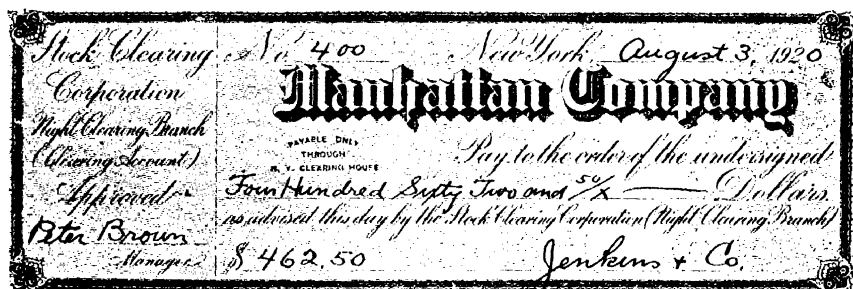 Stock Clearing
Corporation
Night Clearing Branch
(Clearing Account)
Approved
Peter Brown
Manager
No. 400 New York August 3, 1920
Manhattan Company
PAYABLE ONLY
THROUGH
N. Y. CLEARING HOUSE
Pay to the order of the undersigned
Four Hundred Sixty Two and 50/x Dollars
as advised this day by the Stock Clearing Corporation (Night Clearing Branch)
$ 462.50 Jenkins + Co.